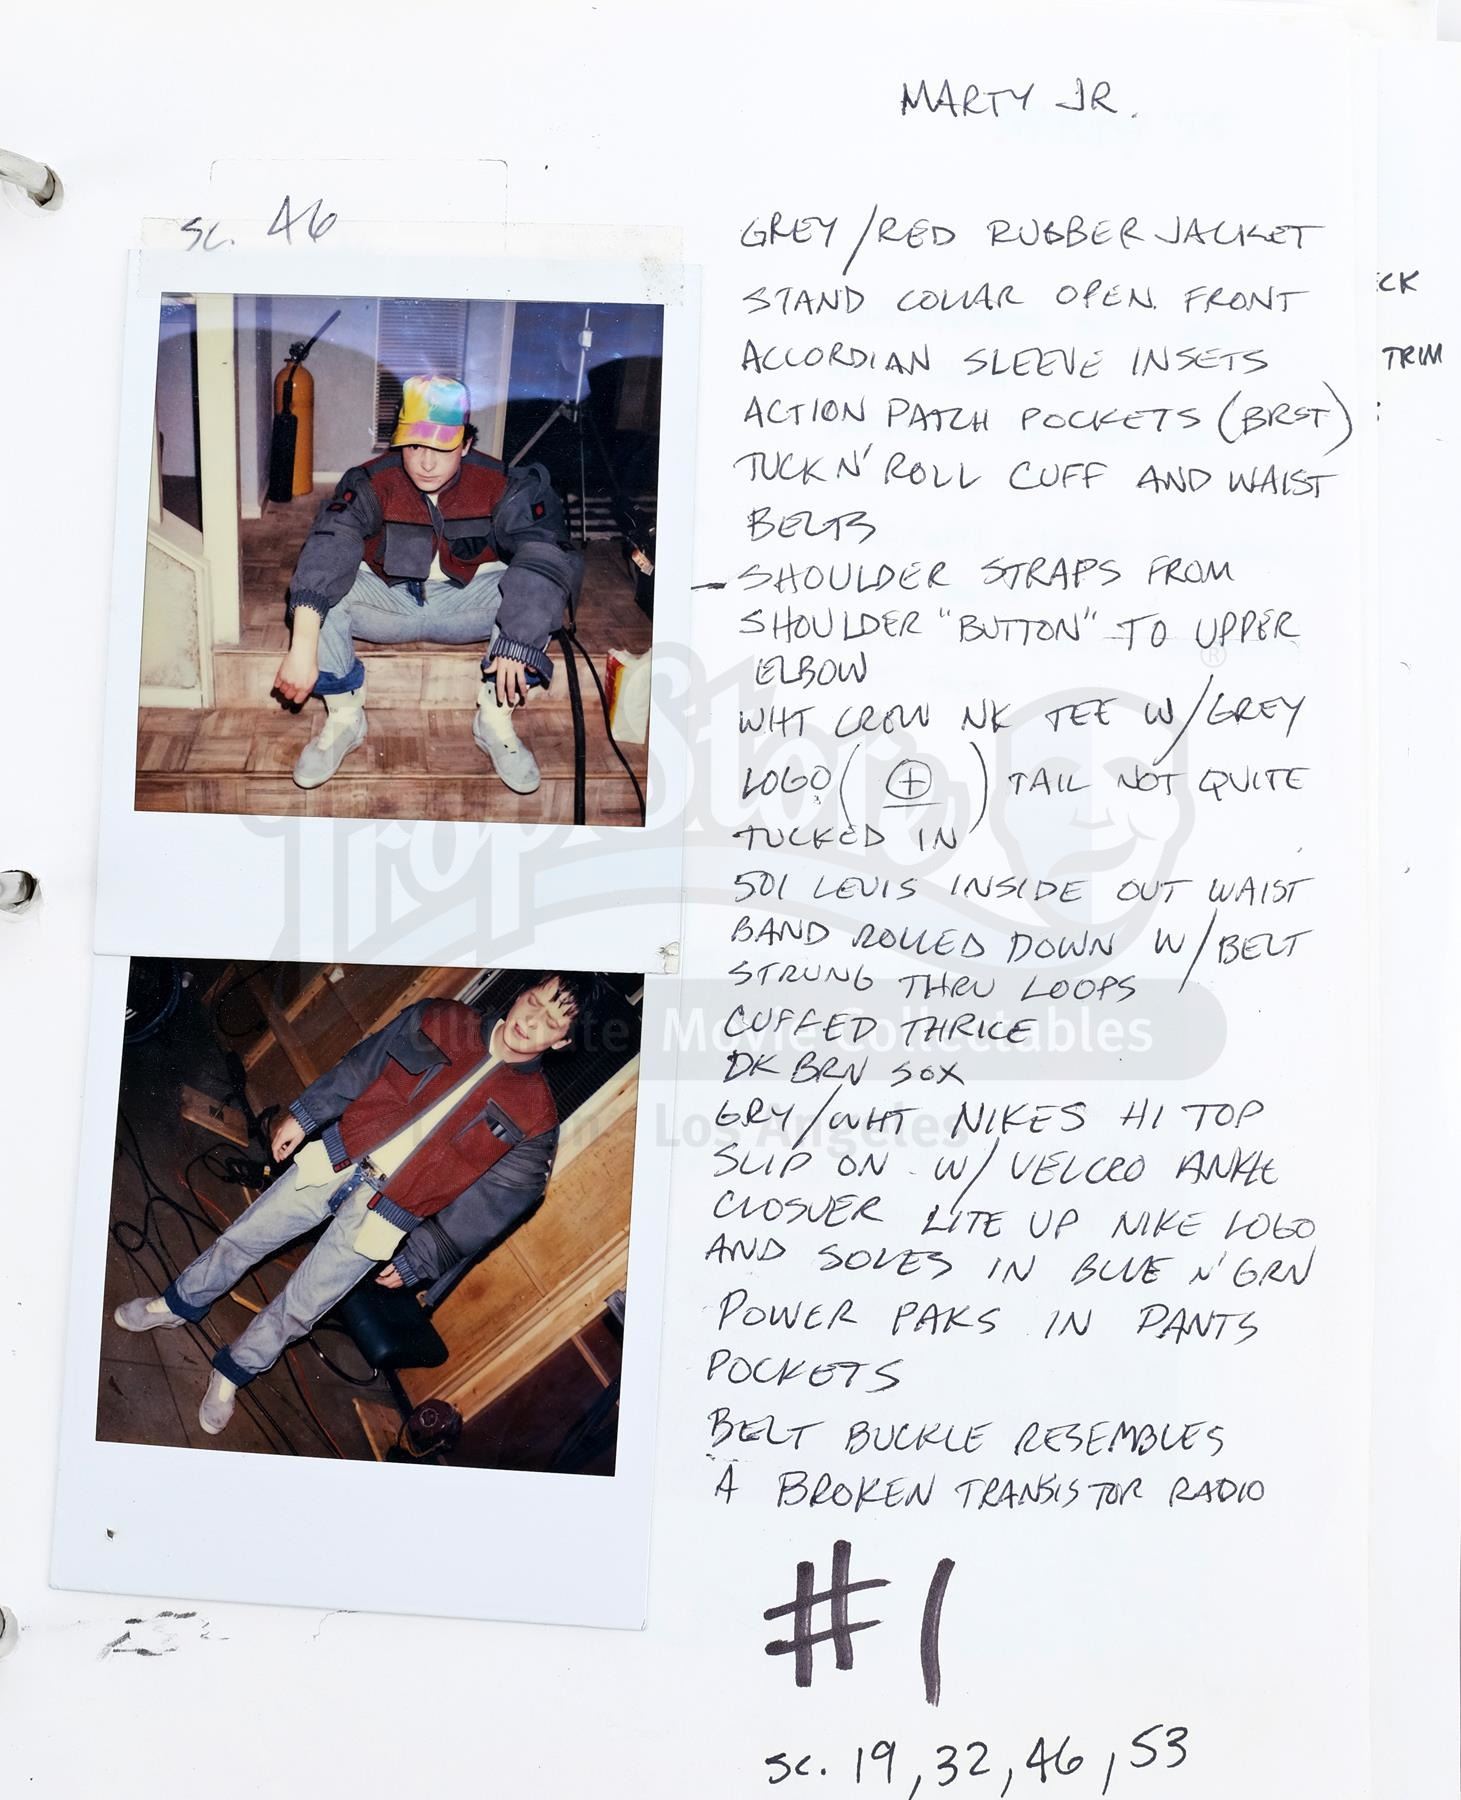 MARTY JR.
SC. 46
GREY/RED RUBBER JACKET
STAND COLLAR OPEN FRONT
CK
ACCORDIAN SLEEVE INSETS
TRIM
ACTION PATCH POCKETS (BRST)
TUCK N' ROLL CUFF AND WAIST
BELTS
- SHOULDER STRAPS FROM
SHOULDER "BUTTON" TO UPPER
ELBOW
WHT CREW NK TEE W/GREY
LOGO ( ⊕ ) TAIL NOT QUITE
TUCKED IN
501 LEVIS INSIDE OUT WAIST
BAND ROLLED DOWN W/BELT
STRUNG THRU LOOPS
CUFFED THRICE
DK BRN SOX
GRY/WHT NIKES HI TOP
SLIP ON W/VELCRO ANKLE
CLOSUER LITE UP NIKE LOGO
AND SOLES IN BLUE N' GRN
POWER PAKS IN PANTS
POCKETS
BELT BUCKLE RESEMBLES
A BROKEN TRANSISTOR RADIO
#1
SC. 19, 32, 46, 53
PropStore
®
Ultimate Movie Collectables
London - Los Angeles